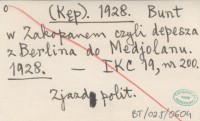 (Kęp). 1928. Bunt
w Zakopanem czyli depesza
z Berlina do Medjolanu.
1928. — IKC 99, m 200.
Zjazd polit.
BT/025/0604